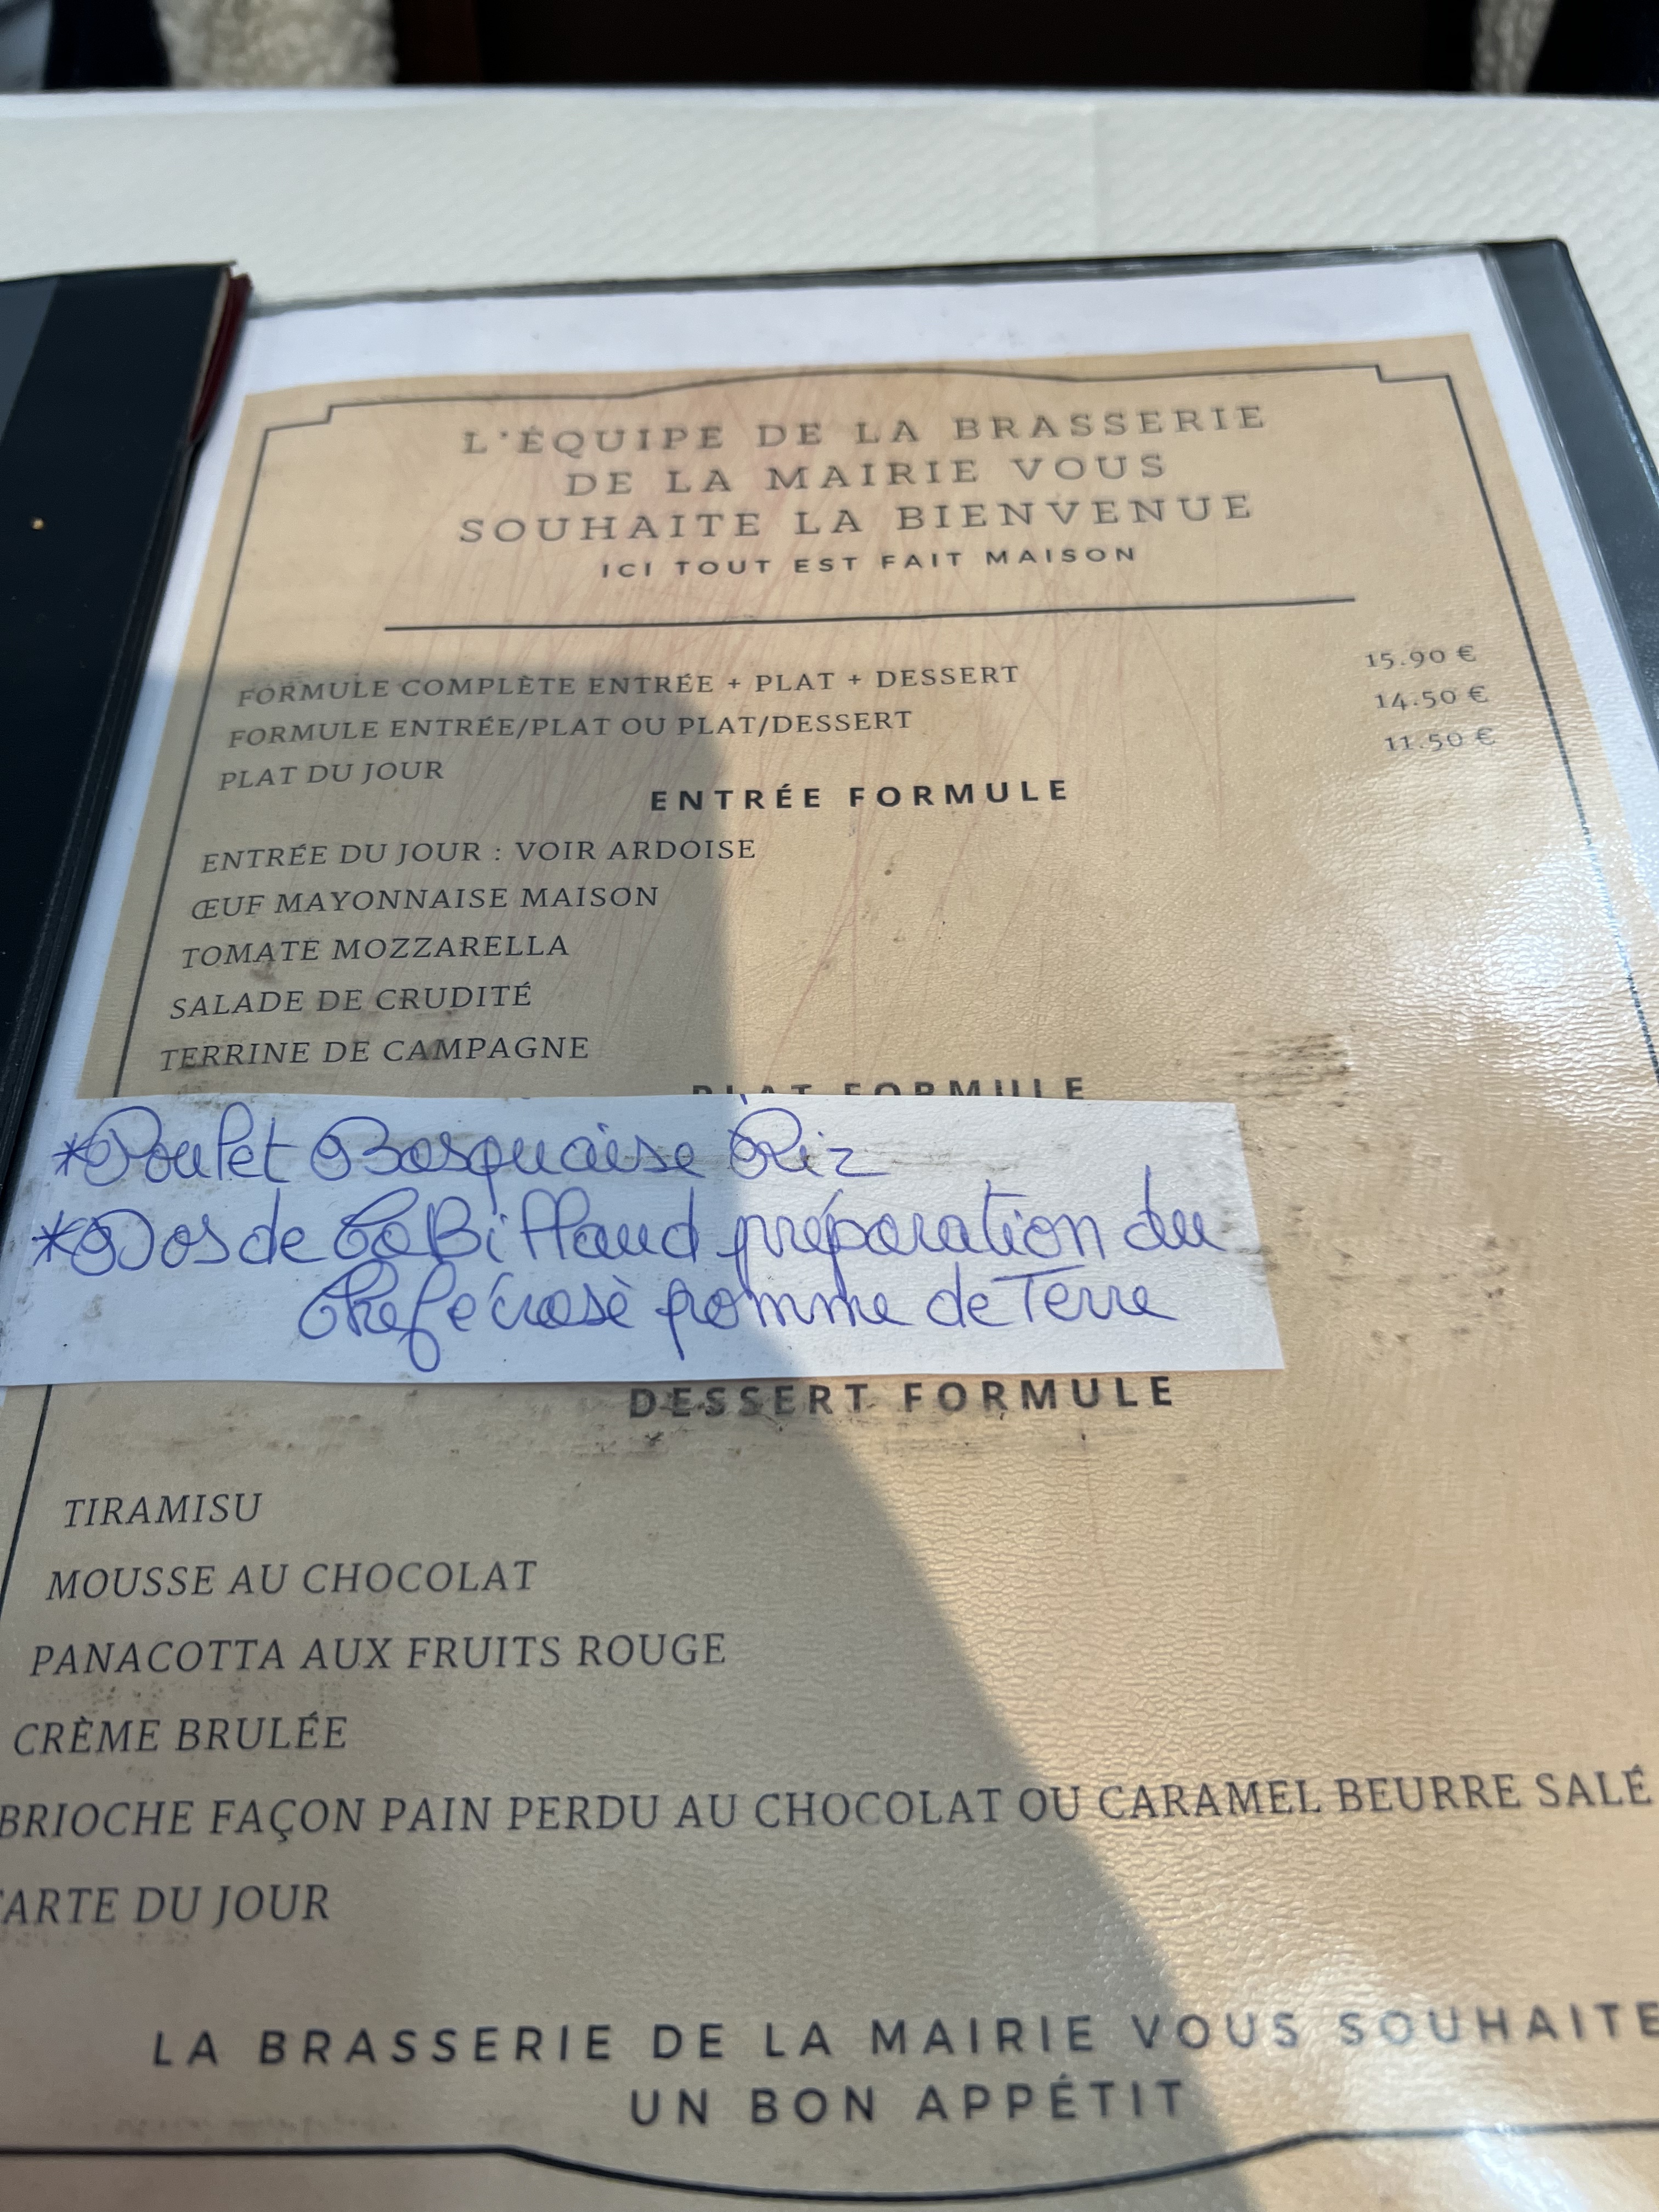 L'ÉQUIPE DE LA BRASSERIE
DE LA MAIRIE VOUS
SOUHAITE LA BIENVENUE
ICI TOUT EST FAIT MAISON
FORMULE COMPLÈTE ENTRÉE + PLAT + DESSERT 15.90 €
FORMULE ENTRÉE/PLAT OU PLAT/DESSERT 14.50 €
PLAT DU JOUR 11.50 €
ENTRÉE FORMULE
ENTRÉE DU JOUR : VOIR ARDOISE
ŒUF MAYONNAISE MAISON
TOMATE MOZZARELLA
SALADE DE CRUDITÉ
TERRINE DE CAMPAGNE
PLAT FORMULE
*Poulet Basquaise Riz
*Dos de CaBillaud préparation du
Chef écrasè pomme de Terre
DESSERT FORMULE
TIRAMISU
MOUSSE AU CHOCOLAT
PANACOTTA AUX FRUITS ROUGE
CRÈME BRULÉE
BRIOCHE FAÇON PAIN PERDU AU CHOCOLAT OU CARAMEL BEURRE SALÉ
TARTE DU JOUR
LA BRASSERIE DE LA MAIRIE VOUS SOUHAITE
UN BON APPÉTIT